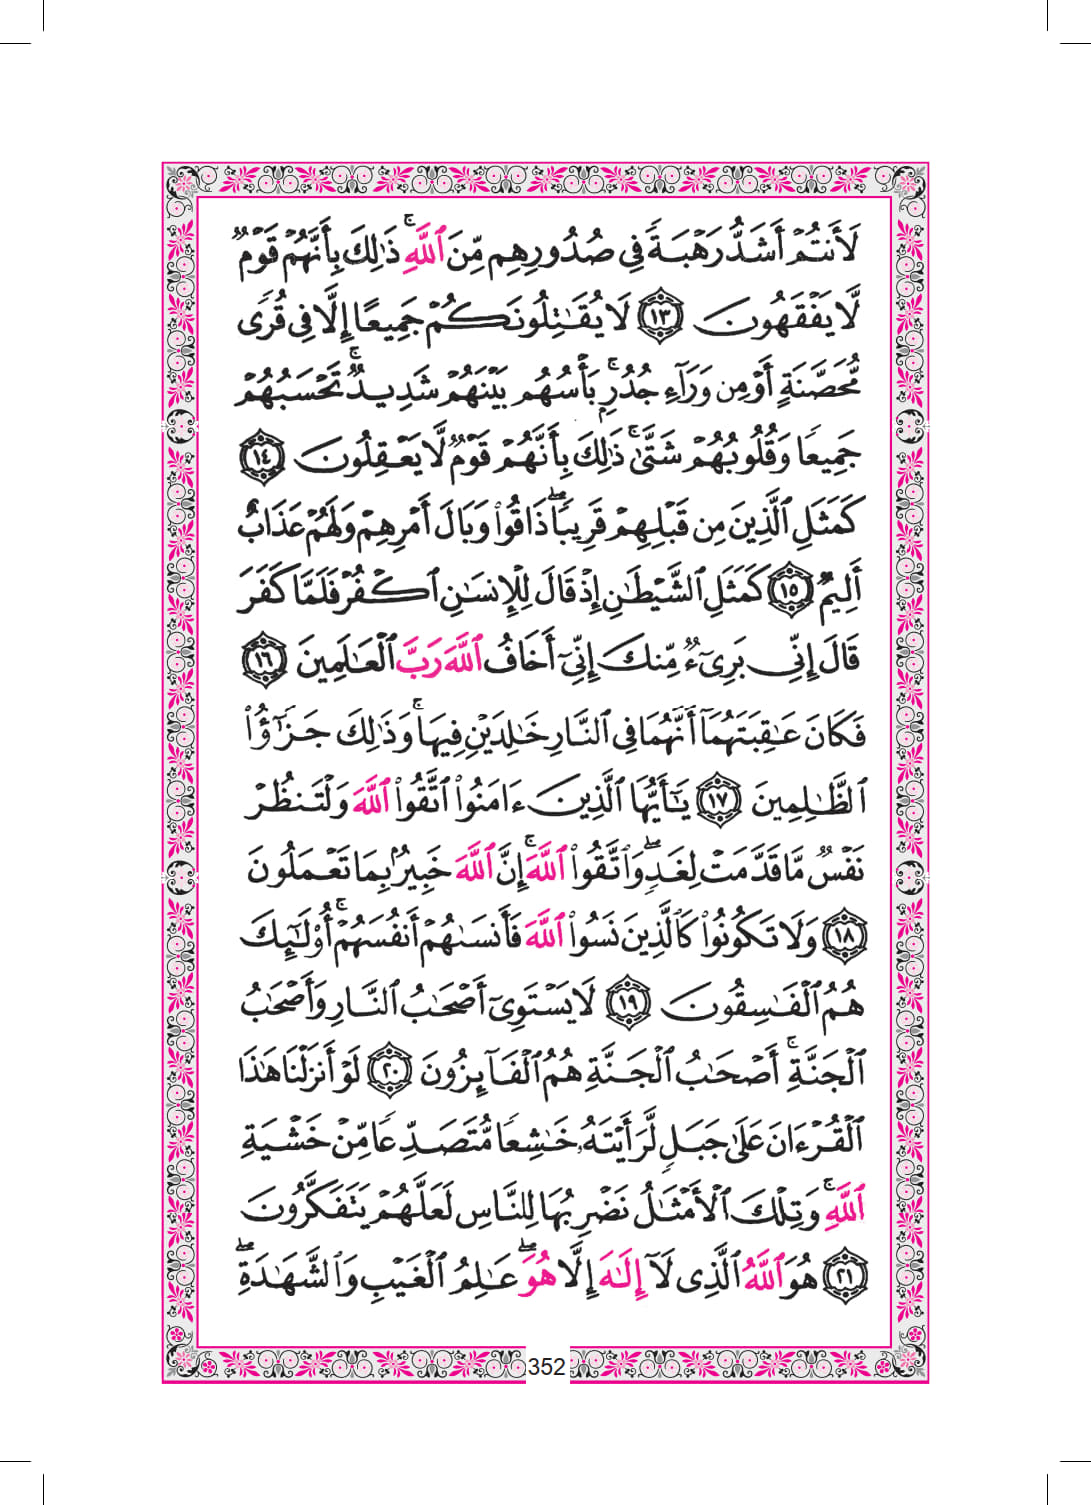 لَأَنتُمْ أَشَدُّ رَهْبَةً فِي صُدُورِهِم مِّنَ ٱللَّهِۚ ذَٰلِكَ بِأَنَّهُمْ قَوْمٌ
لَّا يَفْقَهُونَ ١٣ لَا يُقَٰتِلُونَكُمْ جَمِيعًا إِلَّا فِي قُرًى
مُّحَصَّنَةٍ أَوْ مِن وَرَآءِ جُدُرٍۚ بَأْسُهُم بَيْنَهُمْ شَدِيدٌۚ تَحْسَبُهُمْ
جَمِيعًا وَقُلُوبُهُمْ شَتَّىٰۚ ذَٰلِكَ بِأَنَّهُمْ قَوْمٌ لَّا يَعْقِلُونَ ١٤
كَمَثَلِ ٱلَّذِينَ مِن قَبْلِهِمْ قَرِيبًاۖ ذَاقُوا۟ وَبَالَ أَمْرِهِمْ وَلَهُمْ عَذَابٌ
أَلِيمٌ ١٥ كَمَثَلِ ٱلشَّيْطَٰنِ إِذْ قَالَ لِلْإِنسَٰنِ ٱكْفُرْ فَلَمَّا كَفَرَ
قَالَ إِنِّي بَرِيٓءٌ مِّنكَ إِنِّيٓ أَخَافُ ٱللَّهَ رَبَّ ٱلْعَٰلَمِينَ ١٦
فَكَانَ عَٰقِبَتَهُمَآ أَنَّهُمَا فِي ٱلنَّارِ خَٰلِدَيْنِ فِيهَاۚ وَذَٰلِكَ جَزَٰٓؤُا۟
ٱلظَّٰلِمِينَ ١٧ يَٰٓأَيُّهَا ٱلَّذِينَ ءَامَنُوا۟ ٱتَّقُوا۟ ٱللَّهَ وَلْتَنظُرْ
نَفْسٌ مَّا قَدَّمَتْ لِغَدٍۖ وَٱتَّقُوا۟ ٱللَّهَۚ إِنَّ ٱللَّهَ خَبِيرٌۢ بِمَا تَعْمَلُونَ
١٨ وَلَا تَكُونُوا۟ كَٱلَّذِينَ نَسُوا۟ ٱللَّهَ فَأَنسَىٰهُمْ أَنفُسَهُمْۚ أُو۟لَٰٓئِكَ
هُمُ ٱلْفَٰسِقُونَ ١٩ لَا يَسْتَوِيٓ أَصْحَٰبُ ٱلنَّارِ وَأَصْحَٰبُ
ٱلْجَنَّةِۚ أَصْحَٰبُ ٱلْجَنَّةِ هُمُ ٱلْفَآئِزُونَ ٢٠ لَوْ أَنزَلْنَا هَٰذَا
ٱلْقُرْءَانَ عَلَىٰ جَبَلٍ لَّرَأَيْتَهُۥ خَٰشِعًا مُّتَصَدِّعًا مِّنْ خَشْيَةِ
ٱللَّهِۚ وَتِلْكَ ٱلْأَمْثَٰلُ نَضْرِبُهَا لِلنَّاسِ لَعَلَّهُمْ يَتَفَكَّرُونَ
٢١ هُوَ ٱللَّهُ ٱلَّذِي لَآ إِلَٰهَ إِلَّا هُوَۖ عَٰلِمُ ٱلْغَيْبِ وَٱلشَّهَٰدَةِۖ
352